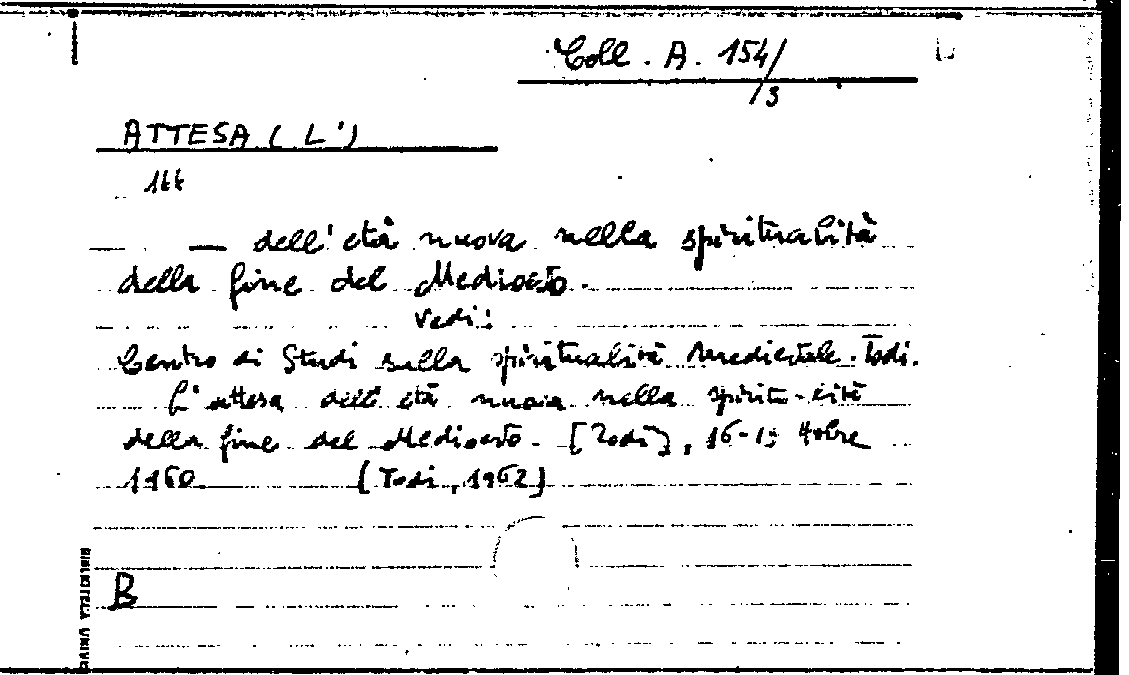 Coll. A. 154/
/3
ATTESA ( L')
— dell'età nuova nella spiritualità
della fine del Medioevo.
Vedi:
Centro di Studi sulla spiritualità medievale. Todi.
L'attesa dell'età nuova nella
della fine del Medioevo. [Todi], 16-19 8obre
1960. [Todi, 1962]
B